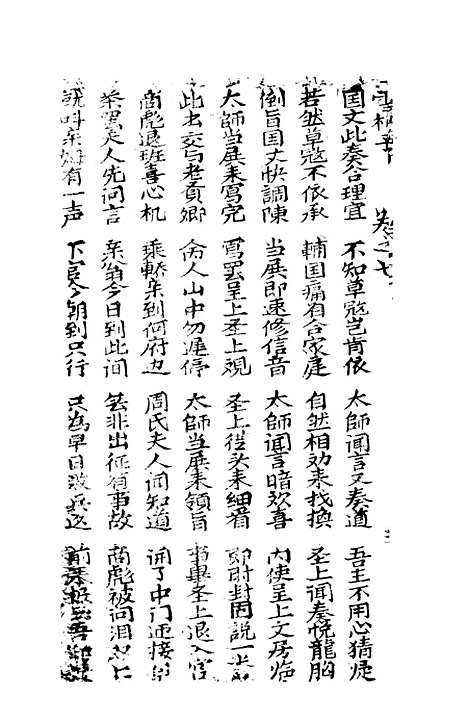 卷之七
国丈此奏合理宜 不知草寇岂肯依 太师闻言又奏道 吾主不用心猜疑
若然草寇不依承 輔国痛省合家庭 自然相劝来找换 圣上闻奏悦龍胸
倒旨国丈快調陳 当展即速修信音 太师闻言暗欢喜 内使呈上文房
太師当展来寫完 寫罢呈上圣上观 圣上従头来细看 即时封固説一
此出交与老贡卿 命人山中勿遲停 太师当展来領旨 事畢圣上退入宫
商彪退班喜心机 乘轎来到何府边 周氏夫人闻知道 闹了中门迎接
走人先问言 亲翁今日到此间 莫非出征有事故 商彪被问泪
就叫亲姆有一声 下官今朝到只行 只為早日 兵返 前来报